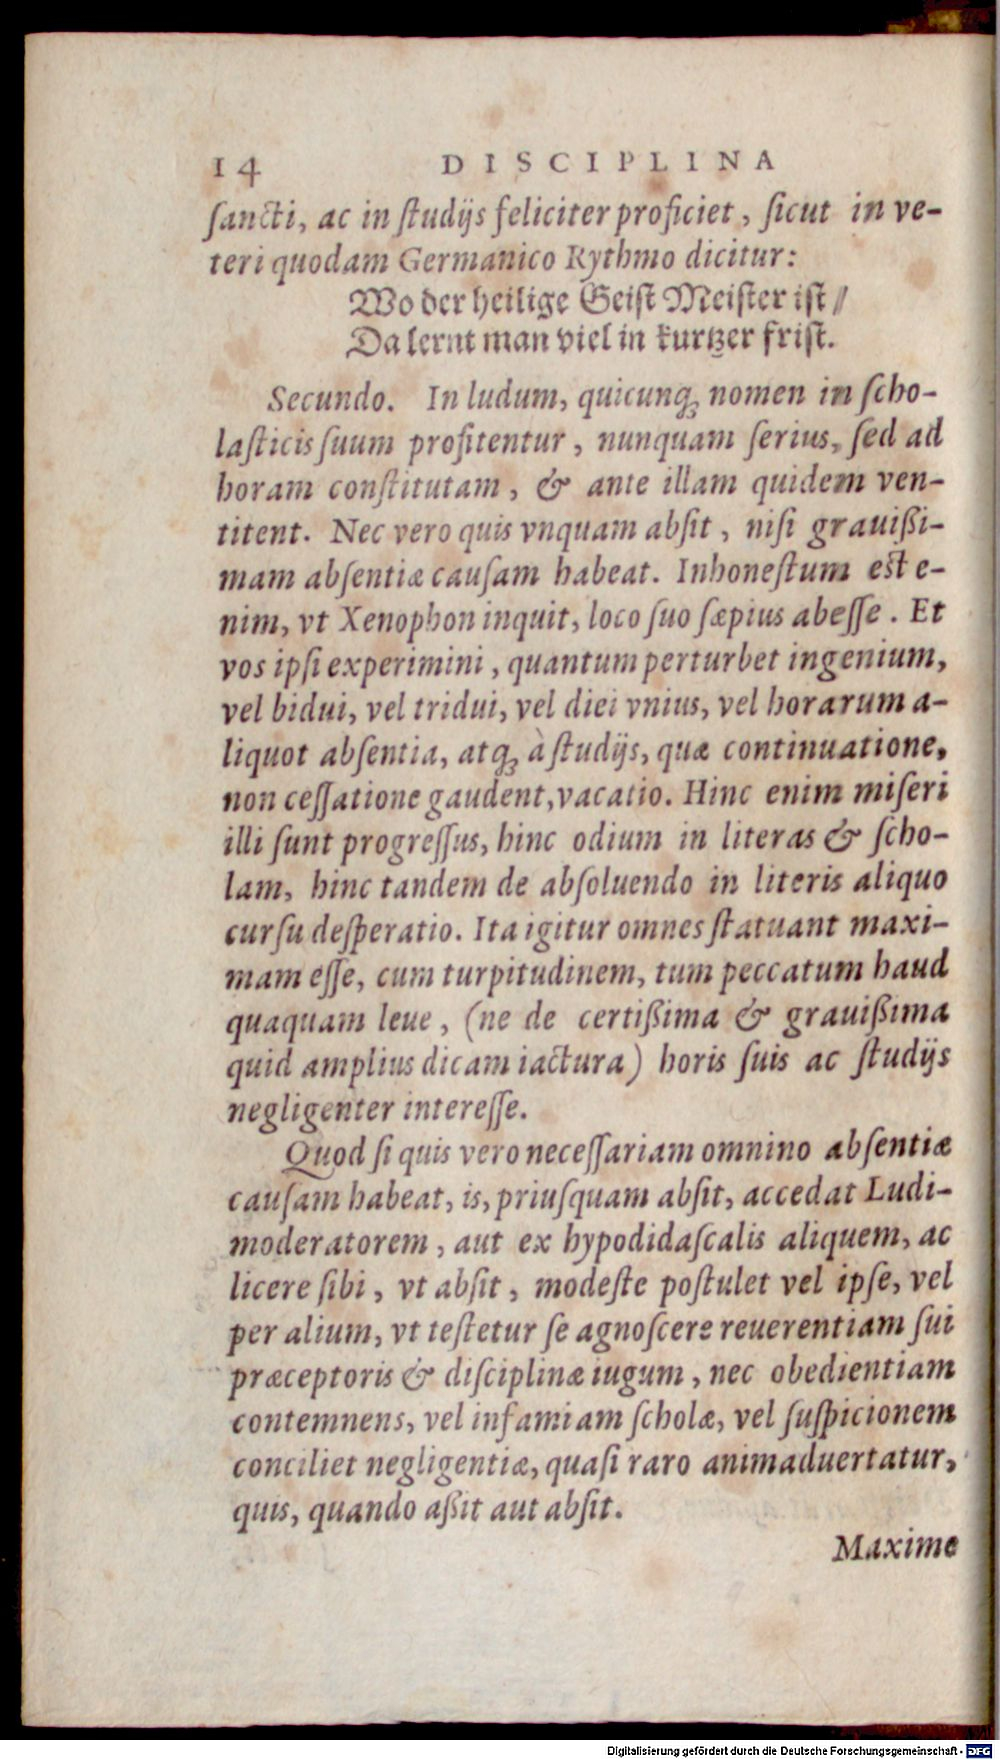 14 DISCIPLINA
ſancti, ac in ſtudijs feliciter proficiet, ſicut in ve-
teri quodam Germanico Rythmo dicitur:
Wo der heilige Geiſt Meiſter iſt /
Da lernt man viel in kurtzer friſt.
Secundo. In ludum, quicunq; nomen in ſcho-
laſticis ſuum profitentur, nunquam ſerius, ſed ad
horam conſtitutam, & ante illam quidem ven-
titent. Nec vero quis vnquam abſit, niſi grauißi-
mam abſentiæ cauſam habeat. Inhoneſtum eſt e-
nim, vt Xenophon inquit, loco ſuo ſæpius abeſſe. Et
vos ipſi experimini, quantum perturbet ingenium,
vel bidui, vel tridui, vel diei vnius, vel horarum a-
liquot abſentia, atq; à ſtudijs, quæ continuatione,
non ceſſatione gaudent, vacatio. Hinc enim miſeri
illi ſunt progreſſus, hinc odium in literas & ſcho-
lam, hinc tandem de abſoluendo in literis aliquo
curſu deſperatio. Ita igitur omnes ſtatuant maxi-
mam eſſe, cum turpitudinem, tum peccatum haud
quaquam leue, (ne de certißima & grauißima
quid amplius dicam iactura) horis ſuis ac ſtudijs
negligenter intereſſe.
Quod ſi quis vero neceſſariam omnino abſentiæ
cauſam habeat, is, priuſquam abſit, accedat Ludi-
moderatorem, aut ex hypodidaſcalis aliquem, ac
licere ſibi, vt abſit, modeſte poſtulet vel ipſe, vel
per alium, vt teſtetur ſe agnoſcere reuerentiam ſui
præceptoris & diſciplinæ iugum, nec obedientiam
contemnens, vel infamiam ſcholæ, vel ſuſpicionem
conciliet negligentiæ, quaſi raro animaduertatur,
quis, quando aßit aut abſit.
Maxime
Digitalisierung gefördert durch die Deutsche Forschungsgemeinschaft - DFG